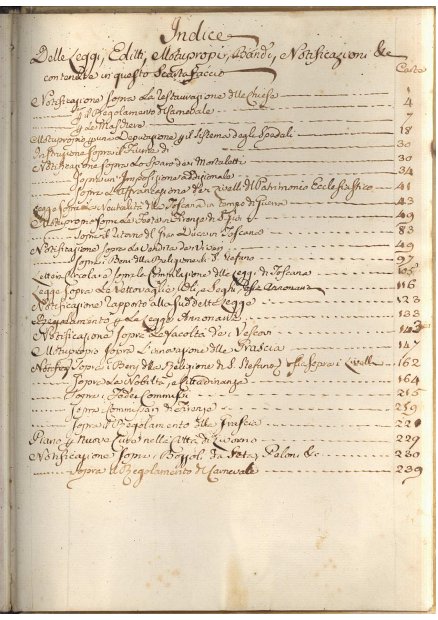 Indice
Delle Leggi, Editti, Motupropj, Bandi, Notificazioni &c
contenute in questo Scartafaccio
Carte
Notificazione sopra la restaurazione delle Chiese 4
pel Regolamento di Carnevale 7
p le Maschere 7
Motuproprio p una Deputazione p il sistema degli Spedali 18
Istruzione sopra il Fiume di 30
Notificazione sopra lo Sparo dei Mortaletti 30
sopra un' Imposizione Addizionale 34
sopra l'Affrancazione dei Livelli del Patrimonio Ecclesiastico 41
Legge sopra la Neutralità della Toscana in tempo di Guerra 43
Motuproprio sopra la 49
sopra il ritorno del Gran Duca in Toscana 83
Notificazione sopra la Vendita dei Viveri 49
sopra i Beni della Religione di S. Stefano 97
Lettera Circolare sopra la Compilazione delle Leggi di Toscana 105
Legge sopra le Vettovaglie 116
Notificazione rapporto alla sud.a Legge 123
Regolamento p la Legge Annonaria 133
Notificazione sopra le Facoltà dei Vescovi 143
Motuproprio sopra l' della Grascia 147
Notificaz. sopra i Beni della Religione di S. Stefano sopra i Livelli 162
sopra la Nobiltà, e Cittadinanza 164
sopra i Fidecommissi 215
sopra Commissari di Firenze 219
sopra il Regolamento della Grascia 221
Piano p Nuove Cure nella Città di Livorno 229
Notificazione sopra i Bozzoli da Seta, Paloni &c 230
sopra il Regolamento di Carnevale 239